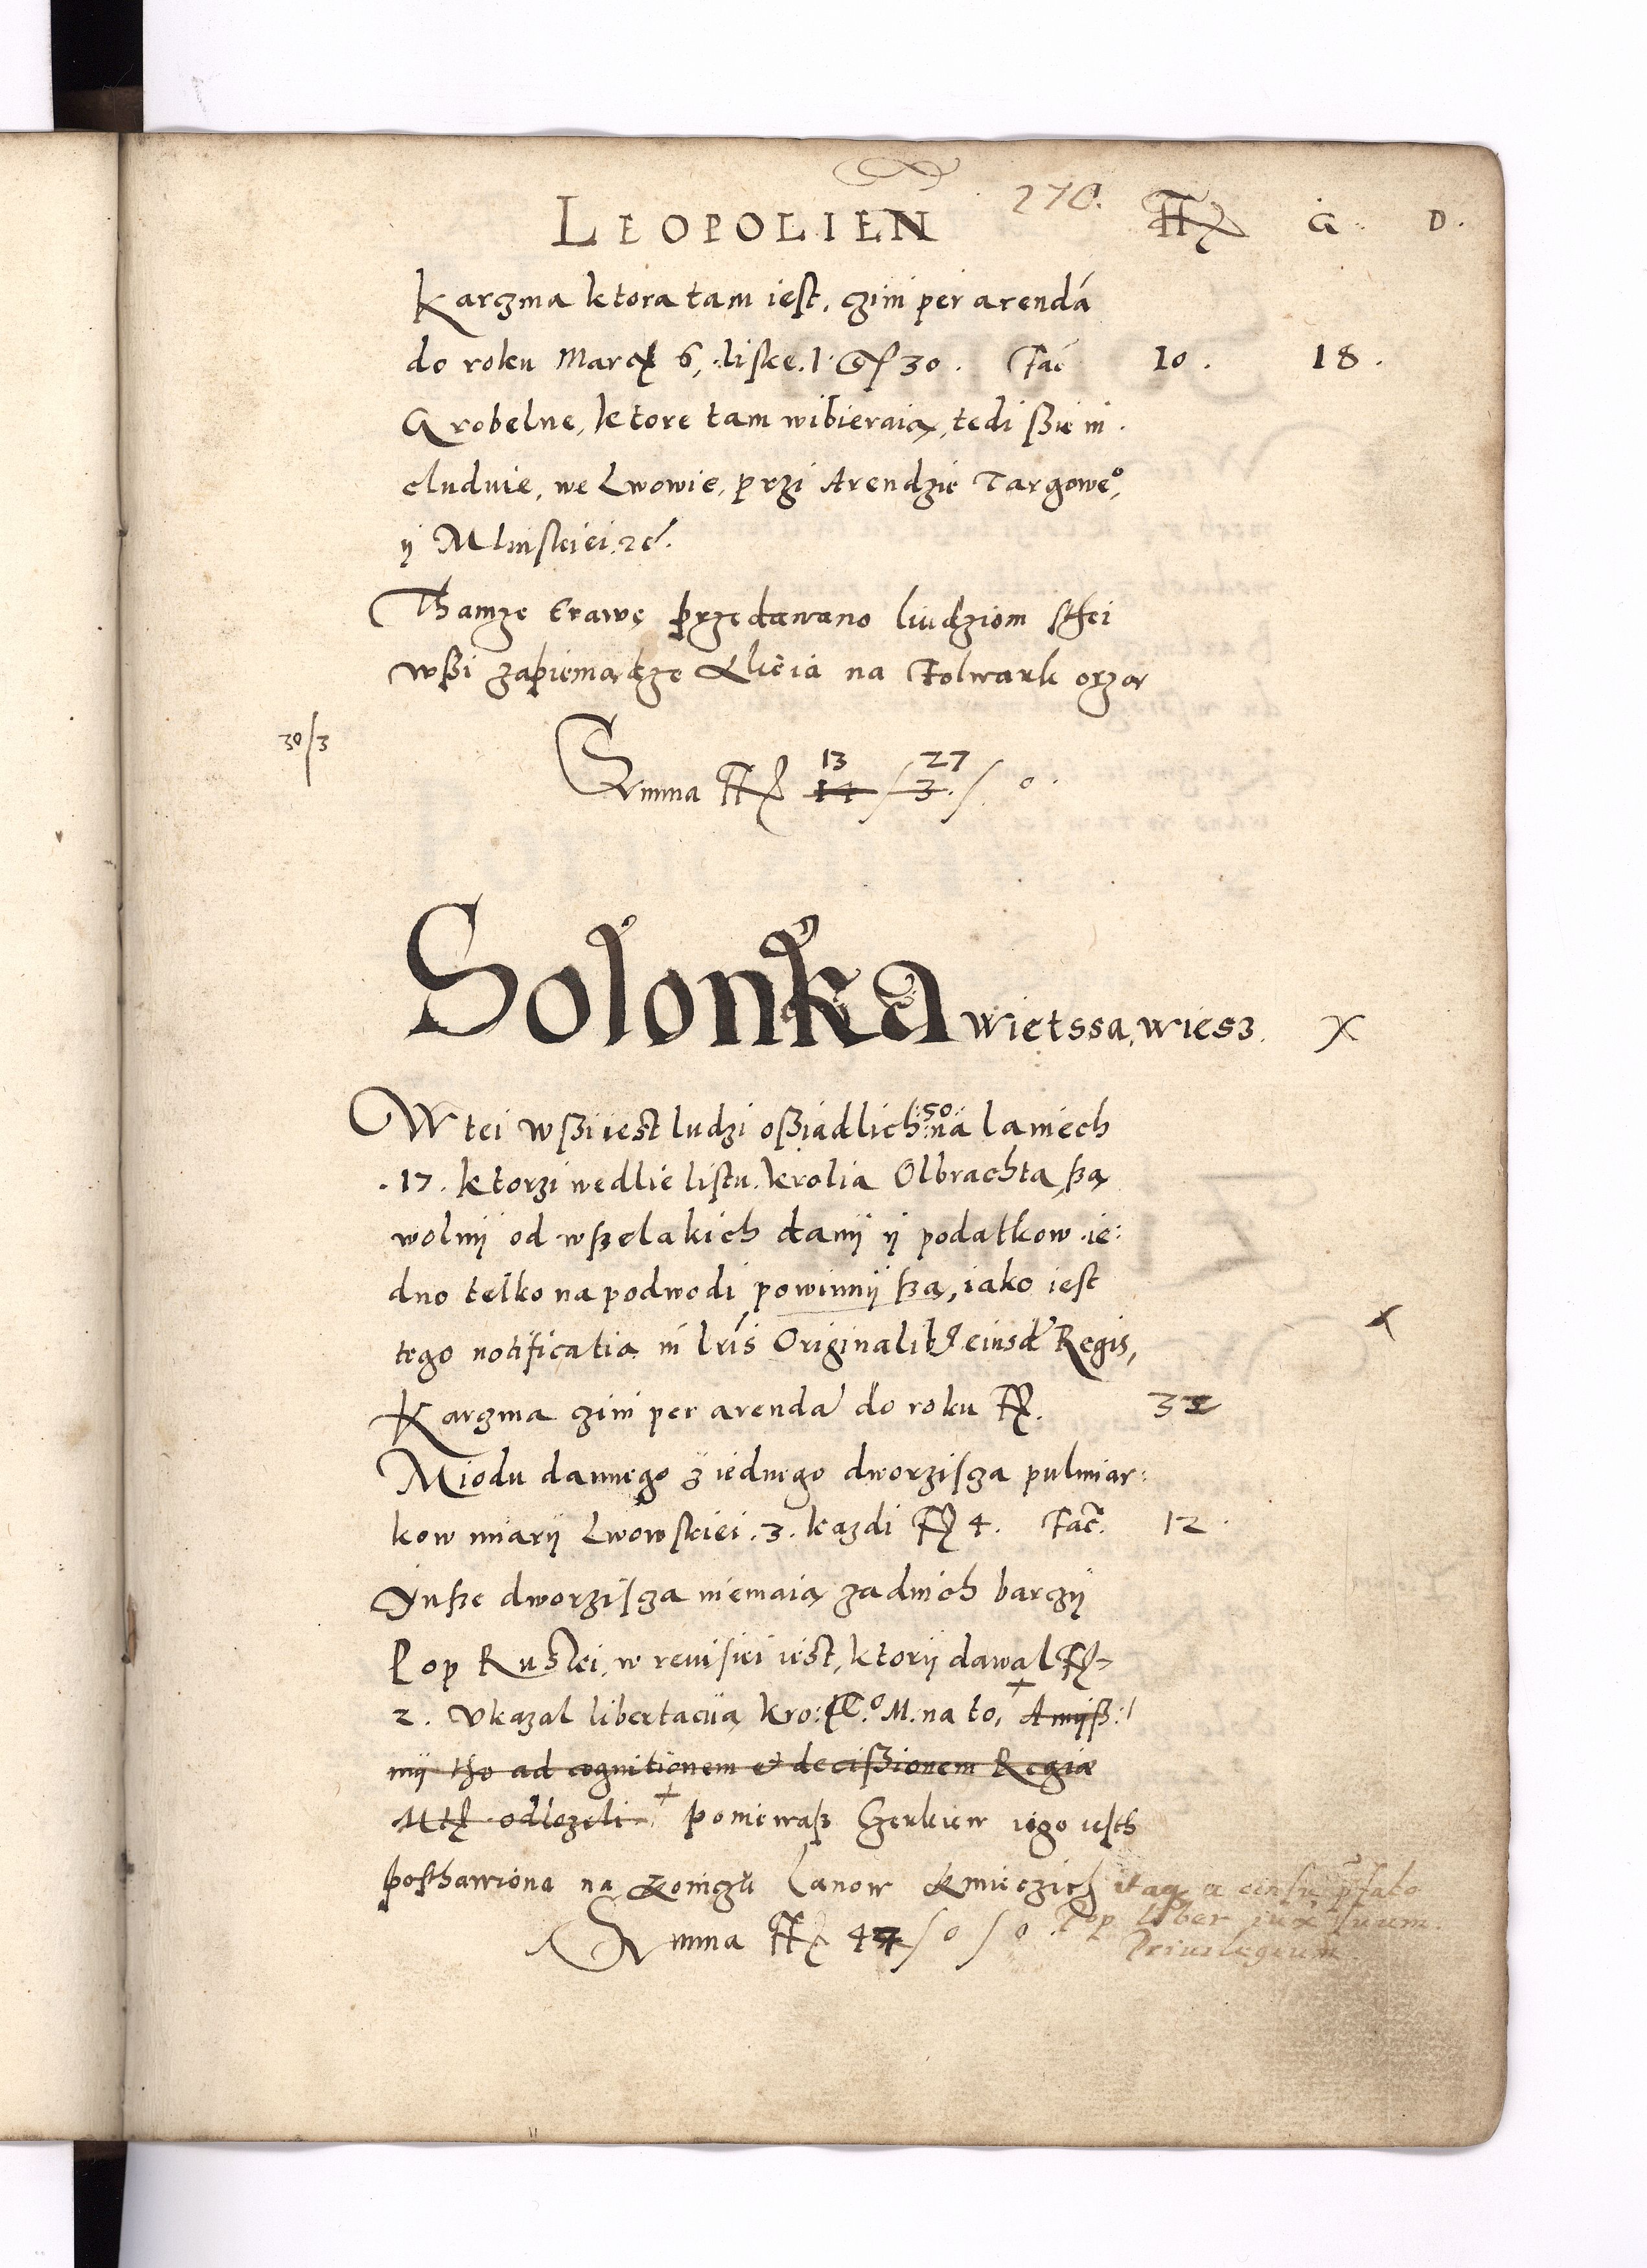 270.
LEOPOLIEN Fl G. D.
Karczma ktora tam iest, czini per arendá
do roku March 6, liske. 1. Gr 30. Fac̄ 10. 18.
Grobelne, ktore tam wibieraią, tedi ßię in
cluduie, we Lwowie, przi Arendzie Targowe°,
ÿ Mlinskiei, 2c.
Thamze trawę przedawano liudziom sthei
wßi zapieniądze która na Folwark orzą
30/3
13 27
Summa Fl 14 / 3 / 0.
Solonka wietssa, wies3. X
W tei wßi iest ludzi oßiadlich 50 na laniech
.17. ktorzi wedlie listu krolia Olbrachta, są
wolnÿ od wszelakich danÿ ÿ podatkow ie:
dno telko na podwodi powinnÿ są, iako iest
tego notificatia in lrīs Originalibus eiusd' Regis,
Karczma czini per arendá do roku Fl. 32
Miodu dannego z iednego dworzisza pulmiar:
kow miarÿ Lwowskiei .3. kazdi Fl 4. Fac̄. 12.
Insze dworzisza niemaią zadnich barczÿ
Pop Ruskei, w reuisiei iest, ktorÿ dawal Fl
2. Vkazal libertacÿą kro: Je° M. na to, A mÿß:
mÿ tho ad cognitionem et decißionem Regiæ
Mtis odlozeli poniewaß Czerkiew iego iesth
posthawiona na koniczu lanow kmieczich itaq a censu
Pop liber iuxta suum
Summa Fl 44 / 0 / 0. Priuilegium